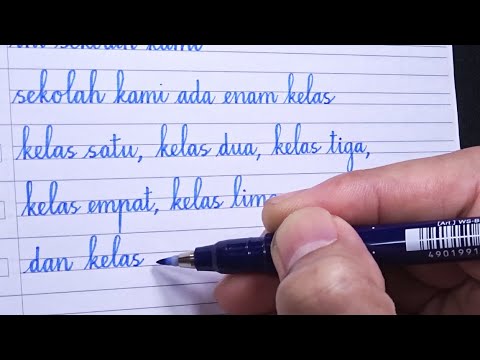 ini sekolah kami
sekolah kami ada enam kelas
kelas satu, kelas dua, kelas tiga,
kelas empat, kelas lima
dan kelas
(Art.) WS-B
4901991